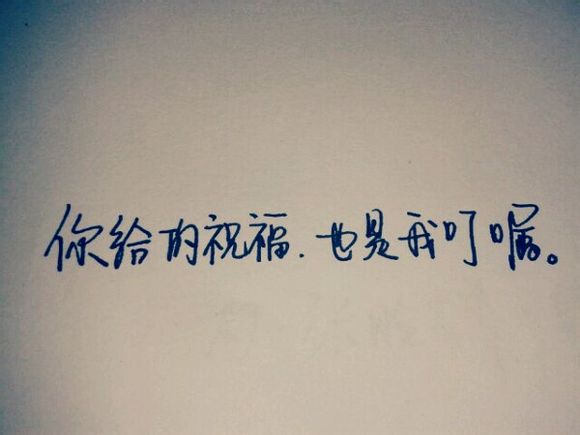 你给的祝福.也是我叮嘱。